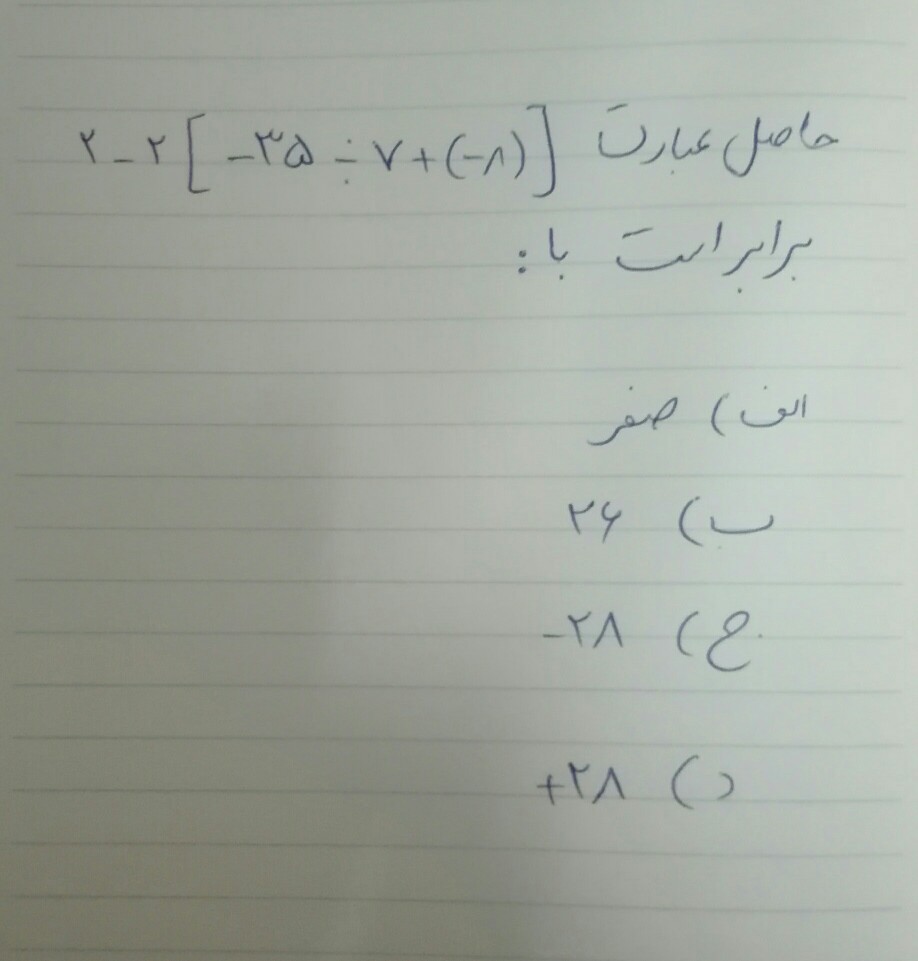 حاصل عبارت [۲-۲[-۳۵÷۷+(-۸)
برابر است با:
الف) صفر
ب) ۲۶
ج) -۲۸
د) +۲۸